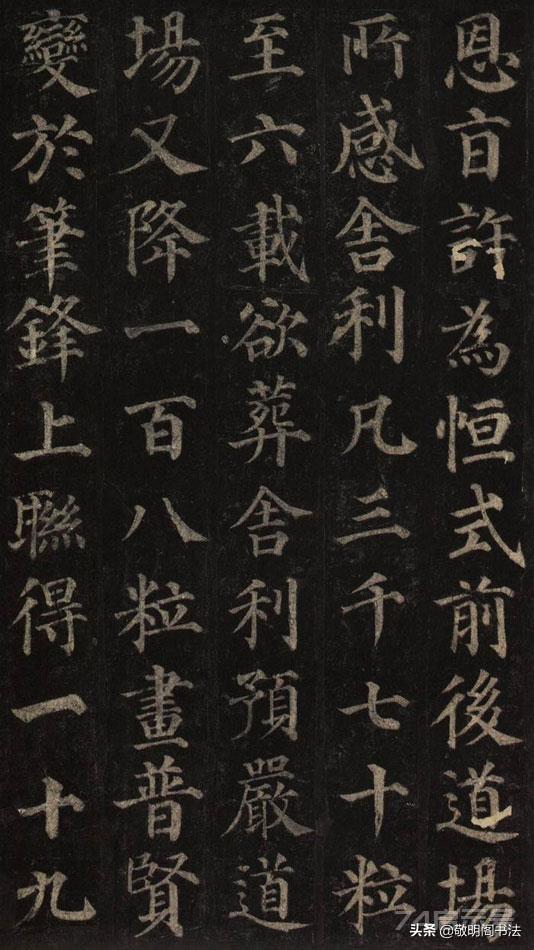 恩旨許為恒式前後道場
所感舍利凡三千七十粒
至六載欲葬舍利預嚴道
場又降一百八粒畫普賢
變於筆鋒上聯得一十九
头条 @敬明阁书法